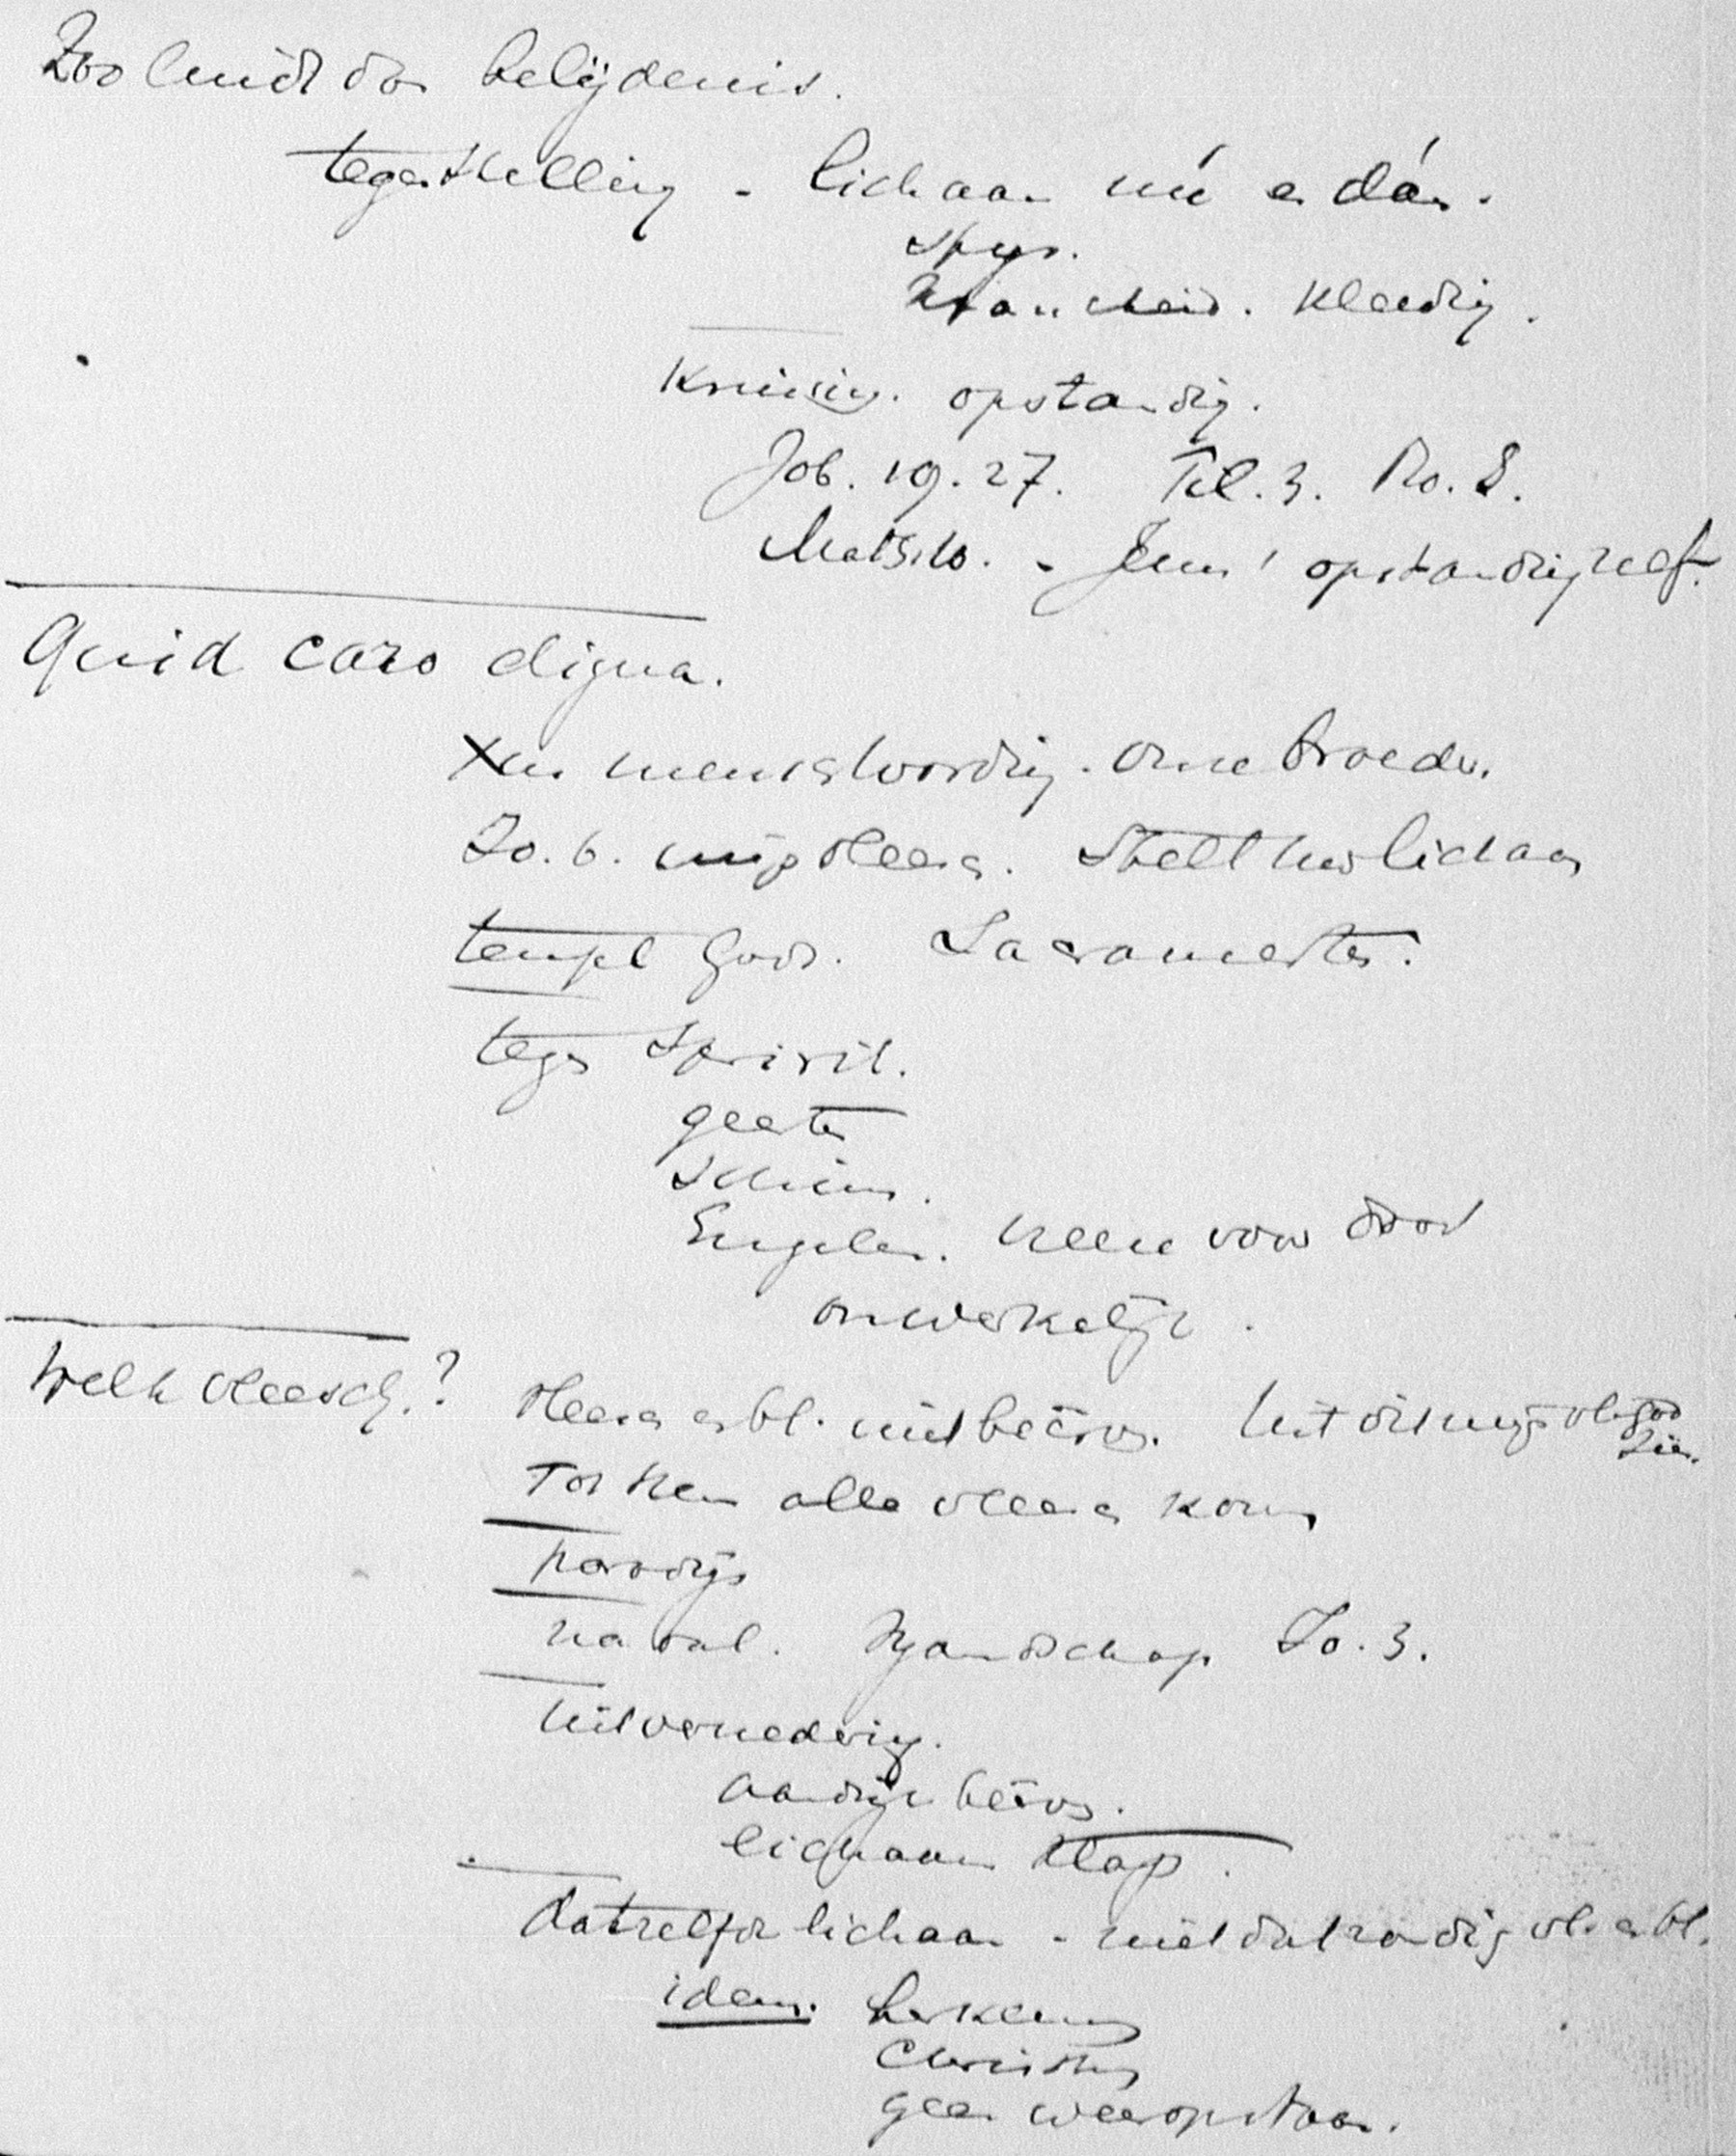 Zoo luidt de belijdenis.
tegenstelling - lichaam nú en dán.
Spijs.
Krankheid. Kleeding.
Kruisig. opstandig.
Job. 19. 27. Fil. 3. Ro. 8.
Matth. 10. - Jezus' opstanding zelf.
Quid caro digna.
Xus menschwording. Onze broeder.
Jo. 6. mijn vleesch. Stelt uw lichaam
tempel Gods. Sacramenten.
tegen Spirit.
geesten
Schim.
Engelen.
onwerkelijk.
Welk vleesch.?
vleesch en bl. niet beërven. Uit dit mijn vl. God zien.
Tot Hem alle vleesch komen
paradijs
na val. Vijandschap Jo. 3.
Uit vernedering.
aardrijk beërven.
lichaam
Datzelfde lichaam - niet dat zondig vl. en bl.
idem. herkenning
Christus
geen weeropstaan.